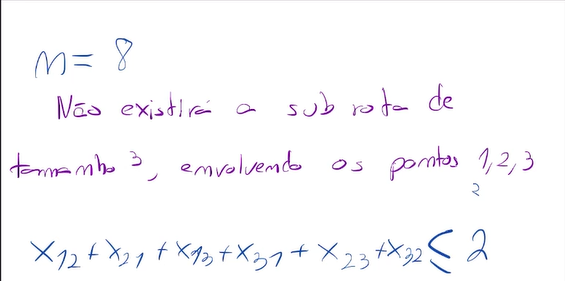 n = 8
Não existirá a sub rota de
tamanho 3, envolvendo os pontos 1,2,3
2
x12 + x21 + x13 + x31 + x23 + x32 ≤ 2